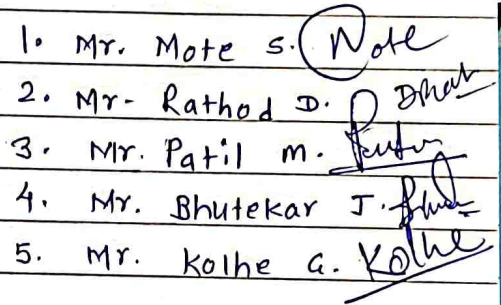 1. Mr. Mote S. Mote
2. Mr- Rathod D.
3. Mr. Patil M.
4. Mr. Bhutekar J.
5. Mr. Kolhe G. Kolhe